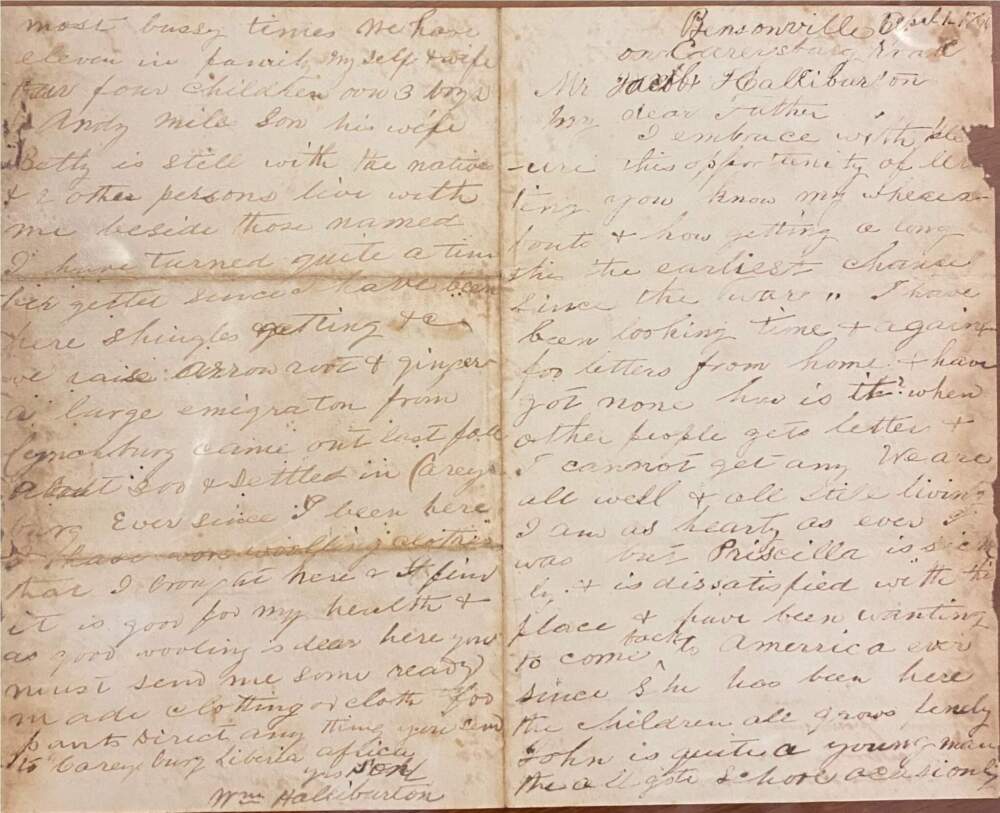 Bensonville
on Careysburg Road
Mr Jacob Halliburton
My dear Father
I embrace with
-ure this opportunity of
ting you know my wherea-
bouts & how getting a long
the earliest chance
since the ware,, I have
been looking time & again
for letters from home & have
got none how is it? when
other people gets letters &
I cannot get any We are
all well & all still living
I am as hearty as ever I
was but Priscilla is sick
ly & is dissatisfied with the
place & have been wanting
to come back to Amerrica ever
since she has been here
the children all grows finely
John is quite a young man
the all gote School ocasionly
most bussy times We have
eleven in family my self & wife
four children own 3 boys
Andy mile Son his wife
Betty is still with the native
& 2 other persons live with
me beside those named
I have turned quite a tim
ber getter since I have been
here Shingles getting &c
we raise arrow root & ginger
a large emigraton from
Lynchburg came out last fall
about 300 & settled in Careys
burg Ever since I been here
I have worn woolling clothes
that I brought here & I find
it is good for my health &
as good wooling is dear here you
must send me some ready
made clothing or cloth for
pants Direct any thing you send
to Careysburg Liberia africa
yrs Son
Wm Halliburton